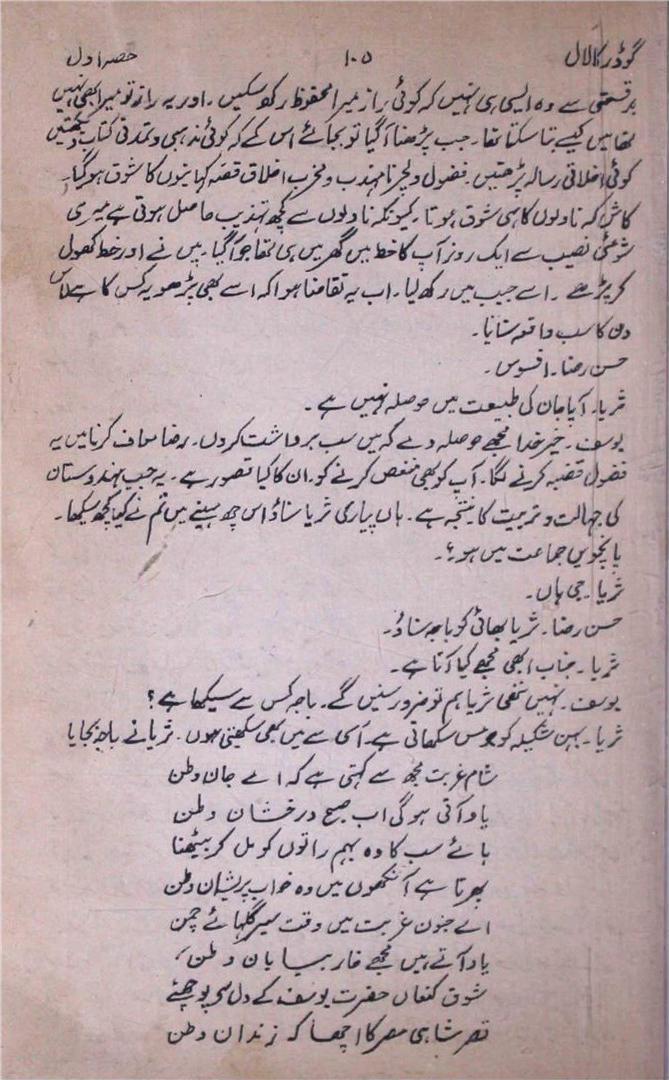 گوڈر کا لال ۱۰۵ حصہ اول
برقسمتی سے وہ ایسی ہی نہیں کہ کوئی راز میرا محفوظ رکھ سکیں ۔ اور یہ راز تو میرا بھی نہیں
تھا میں کیسے بتا سکتا تھا ۔ جب پڑھنا آ گیا تو بجائے اس کے کہ کوئی مذہبی و تمدنی کتاب دیکھتیں
کوئی اخلاقی رسالہ پڑھتیں ۔ فضول و لچر نامہذب و مخرب اخلاق قصہ کہانیوں کا شوق ہو گیا ۔
کاش کہ ناولوں کا ہی شوق ہوتا ۔ کیونکہ ناولوں سے کچھ تہذیب حاصل ہوتی ہے میری
شومئی نصیب سے ایک روز آپ کا خط میں گھر میں ہی تھا جو آگیا ۔ میں نے اور خط کھول
کر پڑھے ۔ اسے جیب میں رکھ لیا ۔ اب یہ تقاضا ہوا کہ اسے بھی پڑھو یہ کس کا ہے اس
دن کا سب واقعہ سنایا ۔
حسن رضا ۔ افسوس ۔
ثریا ۔ آپا جان کی طبیعت میں حوصلہ نہیں ہے ۔
یوسف ۔ خیر خدا مجھے حوصلہ دے کہ میں سب برداشت کروں ۔ رضا معاف کرنا میں یہ
فضول قضیہ کرنے لگا ۔ آپ کو بھی منغص کرنے کو ۔ ان کا کیا قصور ہے ۔ یہ سب ہندوستان
کی جہالت و تربیت کا نتیجہ ہے ۔ ہاں پیاری ثریا سناؤ اس چھ مہینے میں تم نے کیا کچھ سیکھا ۔
پانچویں جماعت میں ہو ؟ ۔
ثریا ۔ جی ہاں ۔
حسن رضا ۔ ثریا بھائی کو باجہ سناؤ ۔
ثریا ۔ جناب ابھی مجھے کیا آتا ہے ۔
یوسف ۔ نہیں ننھی ثریا ہم تو ضرور سنیں گے ۔ باجہ کس سے سیکھا ہے ؟
ثریا ۔ بہن شکیلہ کو جو مس سکھاتی ہے ۔ اسی سے میں بھی سیکھتی ہوں ۔ ثریا نے باجہ بجایا
شام غربت مجھ سے کہتی ہے کہ اے جان وطن
یاد آتی ہو گی اب صبح درخشان وطن
ہائے سب کا وہ بہم راتوں کو مل کر بیٹھنا
پھرتا ہے آنکھوں میں وہ خواب پریشان وطن
اے جنون غربت میں وقت سیر گلہائے چمن
یاد آتے ہیں مجھے خار بیابان وطن ،
شوق کنعاں حضرت یوسف کے دل سے پوچھئے
قصر شاہی مصر کا اچھا کہ زندان وطن